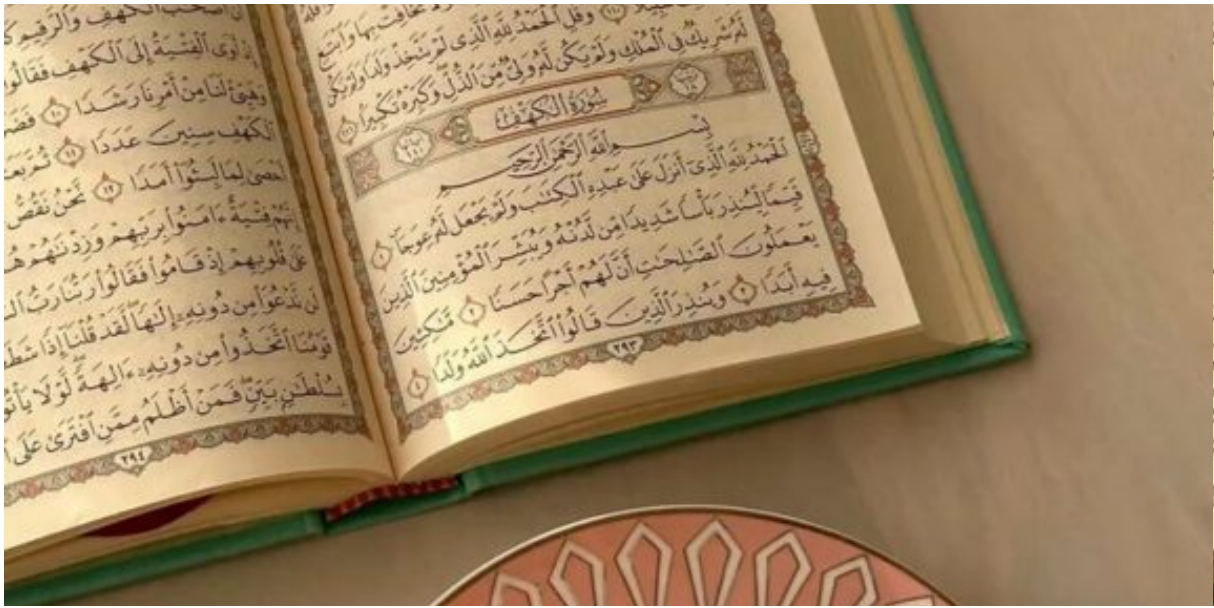 وَقُلِ ٱلْحَمْدُ لِلَّهِ ٱلَّذِى لَمْ يَتَّخِذْ وَلَدًا وَلَمْ يَكُن
لَّهُۥ شَرِيكٌ فِى ٱلْمُلْكِ وَلَمْ يَكُن لَّهُۥ وَلِىٌّ مِّنَ ٱلذُّلِّ وَكَبِّرْهُ تَكْبِيرًا ١١١
سُورَةُ الكَهْفِ
بِسْمِ ٱللَّهِ ٱلرَّحْمَٰنِ ٱلرَّحِيمِ
ٱلْحَمْدُ لِلَّهِ ٱلَّذِىٓ أَنزَلَ عَلَىٰ عَبْدِهِ ٱلْكِتَٰبَ وَلَمْ يَجْعَل لَّهُۥ عِوَجَا ١
قَيِّمًا لِّيُنذِرَ بَأْسًا شَدِيدًا مِّن لَّدُنْهُ وَيُبَشِّرَ ٱلْمُؤْمِنِينَ ٱلَّذِينَ
يَعْمَلُونَ ٱلصَّٰلِحَٰتِ أَنَّ لَهُمْ أَجْرًا حَسَنًا ٢ مَّٰكِثِينَ
فِيهِ أَبَدًا ٣ وَيُنذِرَ ٱلَّذِينَ قَالُوا۟ ٱتَّخَذَ ٱللَّهُ وَلَدًا ٤
٢٩٣
أَصْحَٰبَ ٱلْكَهْفِ وَٱلرَّقِيمِ
إِذْ أَوَى ٱلْفِتْيَةُ إِلَى ٱلْكَهْفِ فَقَالُوا۟
وَهَيِّئْ لَنَا مِنْ أَمْرِنَا رَشَدًا ١٠
ٱلْكَهْفِ سِنِينَ عَدَدًا ١١ ثُمَّ
أَحْصَىٰ لِمَا لَبِثُوٓا۟ أَمَدًا ١٢ نَّحْنُ نَقُصُّ
إِنَّهُمْ فِتْيَةٌ ءَامَنُوا۟ بِرَبِّهِمْ وَزِدْنَٰهُمْ
عَلَىٰ قُلُوبِهِمْ إِذْ قَامُوا۟ فَقَالُوا۟ رَبُّنَا رَبُّ
لَن نَّدْعُوَا۟ مِن دُونِهِۦٓ إِلَٰهًا لَّقَدْ قُلْنَآ إِذًا
قَوْمُنَا ٱتَّخَذُوا۟ مِن دُونِهِۦٓ ءَالِهَةً لَّوْلَا
بِسُلْطَٰنٍۭ بَيِّنٍ فَمَنْ أَظْلَمُ مِمَّنِ ٱفْتَرَىٰ عَلَى
٢٩٤